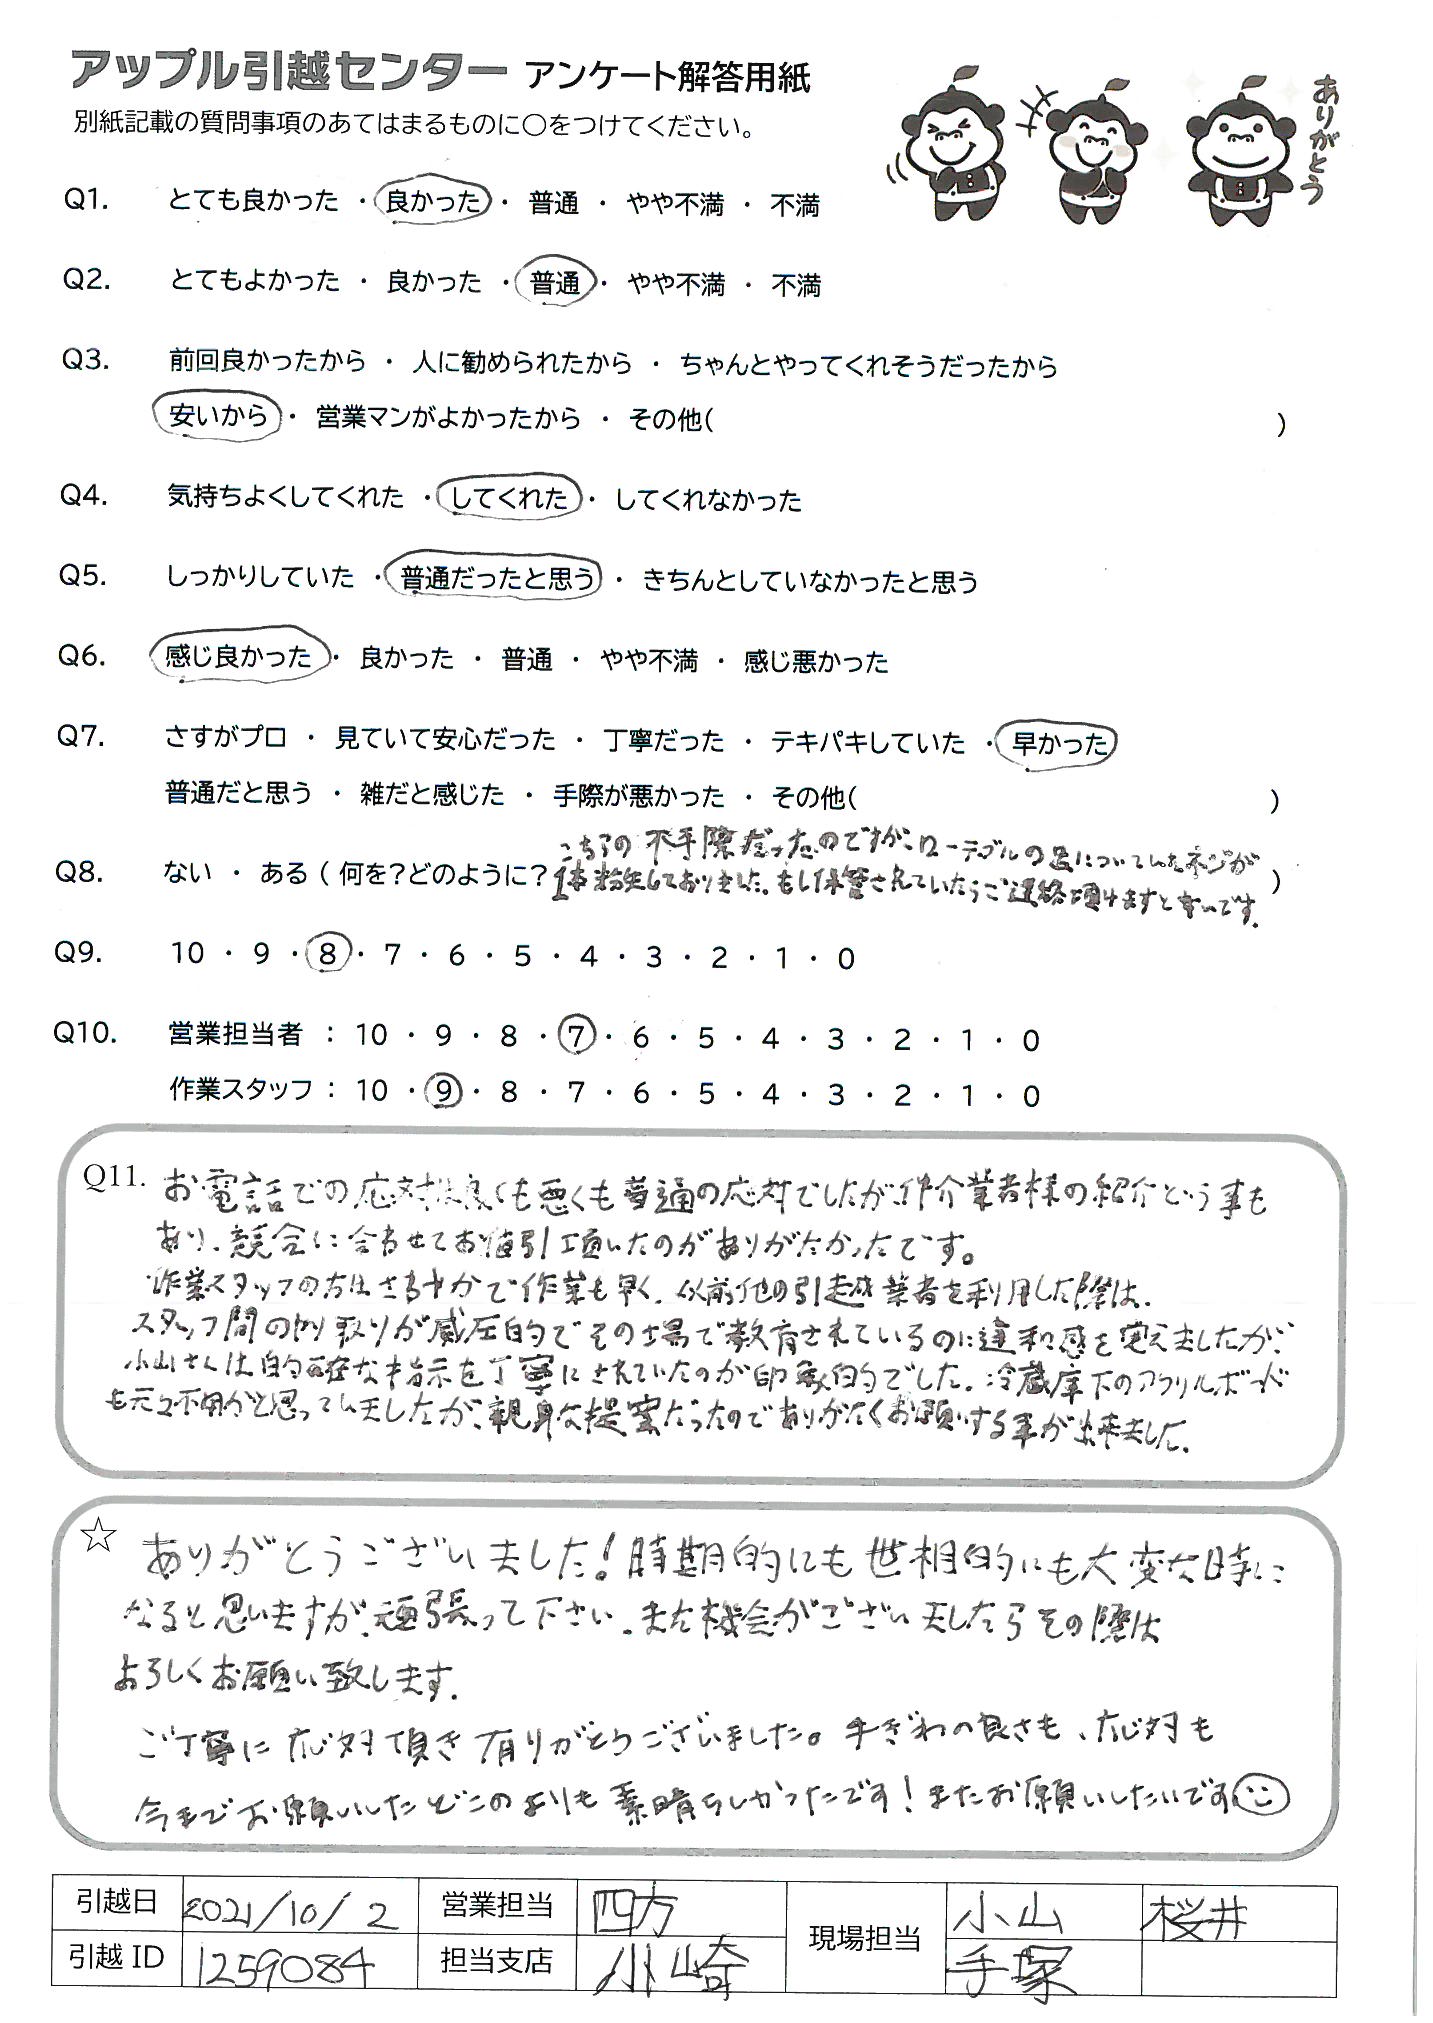 アップル引越センター アンケート解答用紙
別紙記載の質問事項のあてはまるものに〇をつけてください。
ありがとう
Q1. とても良かった ・ 良かった ・ 普通 ・ やや不満 ・ 不満
Q2. とてもよかった ・ 良かった ・ 普通 ・ やや不満 ・ 不満
Q3. 前回良かったから ・ 人に勧められたから ・ ちゃんとやってくれそうだったから
安いから ・ 営業マンがよかったから ・ その他( )
Q4. 気持ちよくしてくれた ・ してくれた ・ してくれなかった
Q5. しっかりしていた ・ 普通だったと思う ・ きちんとしていなかったと思う
Q6. 感じ良かった ・ 良かった ・ 普通 ・ やや不満 ・ 感じ悪かった
Q7. さすがプロ ・ 見ていて安心だった ・ 丁寧だった ・ テキパキしていた ・ 早かった
普通だと思う ・ 雑だと感じた ・ 手際が悪かった ・ その他( )
こちらの不手際だったのですが、ローテーブルの足についていたネジが
Q8. ない ・ ある ( 何を?どのように? 1本紛失しておりました。もし保管されていたらご連絡頂けますと幸いです。 )
Q9. 10 ・ 9 ・ 8 ・ 7 ・ 6 ・ 5 ・ 4 ・ 3 ・ 2 ・ 1 ・ 0
Q10. 営業担当者 : 10 ・ 9 ・ 8 ・ 7 ・ 6 ・ 5 ・ 4 ・ 3 ・ 2 ・ 1 ・ 0
作業スタッフ : 10 ・ 9 ・ 8 ・ 7 ・ 6 ・ 5 ・ 4 ・ 3 ・ 2 ・ 1 ・ 0
Q11. お電話での応対は良くも悪くも普通の応対でしたが、仲介業者様の紹介という事も
あり、競合に合わせてお値引頂いたのがありがたかったです。
作業スタッフの方はさわやかで作業も早く、以前他の引越し業者を利用した際は、
スタッフ間のやり取りが威圧的でその場で教育されているのに違和感を覚えましたが、
小山さんは的確な指示を丁寧にされていたのが印象的でした。冷蔵庫下のアクリルボード
も元々不用かと思っていましたが、親身な提案だったのでありがたくお願いする事が出来ました。
☆ ありがとうございました!時期的にも世相的にも大変な時に
なると思いますが、頑張って下さい。また機会がございましたらその際は
よろしくお願い致します。
ご丁寧に応対頂き有りがとうございました。手ぎわの良さも、応対も
今までお願いしたどこのよりも素晴らしかったです!またお願いしたいです
引越日 2021/10/2 営業担当 四方 現場担当 小山 桜井
引越 ID 1259084 担当支店 小崎 手塚